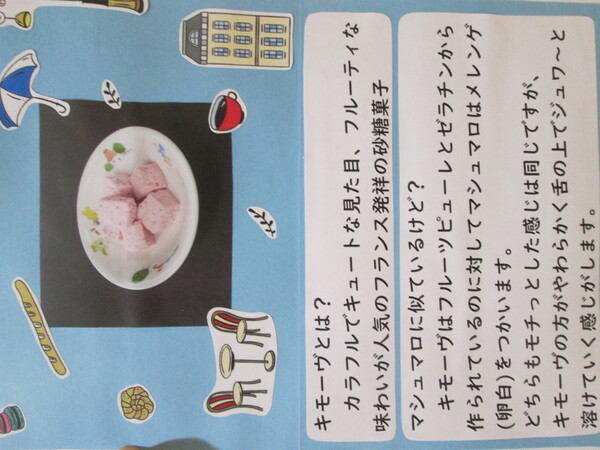 キモーヴとは?
カラフルでキュートな見た目、フルーティな
味わいが人気のフランス発祥の砂糖菓子
マシュマロに似ているけど?
キモーヴはフルーツピューレとゼラチンから
作られているのに対してマシュマロはメレンゲ
(卵白)をつかいます。
どちらもモチっとした感じは同じですが、
キモーヴの方がやわらかく舌の上でジュワ~と
溶けていく感じがします。